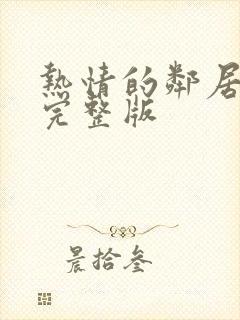 熱情的鄰居
完整版
晨拾叁